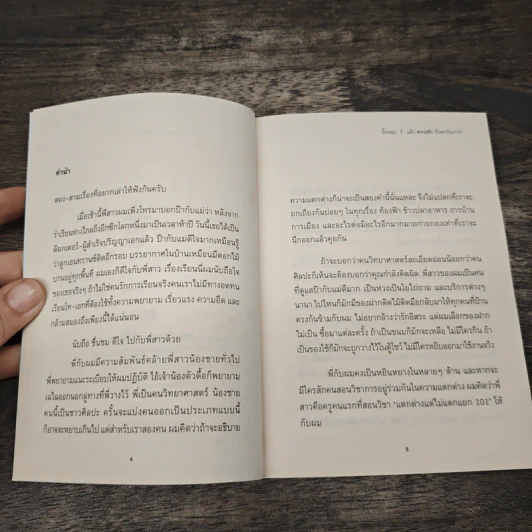 คำนำ
สอง-สามเรื่องที่อยากเล่าให้ฟังกันครับ
เมื่อเช้านี้พี่สาวผมเพิ่งโทรมาบอกป๊ากับแม่ว่า หลังจาก
ร่ำเรียนห่างไกลถึงอีกซีกโลกหนึ่งมาเป็นเวลาห้าปี วันนี้เธอได้เป็น
ด็อกเตอร์-ผู้สำเร็จปริญญาเอกแล้ว ป๊ากับแม่ดีใจมากเหมือนรู้
ว่าลูกเอนทรานซ์ติดอีกรอบ บรรยากาศในบ้านเหมือนมีดอกไม้
บานอยู่ทุกพื้นที่ ผมเองก็ดีใจกับพี่สาว เรื่องเรียนนี่ผมนับถือใจ
ของเธอจริงๆ ถ้าไม่ใช่คนรักการเรียนจริงคนเราไม่มีทางอดทน
เรียนโท-เอกที่ต้องใช้ทั้งความพยายาม เรี่ยวแรง ความอึด และ
กล้ามสมองถึงเพียงนี้ได้แน่นอน
นับถือ ชื่นชม ดีใจ ไปกับพี่สาวด้วย
พี่กับผมมีความสัมพันธ์คล้ายพี่สาวน้องชายทั่วไป
พี่พยายามแนะระเบียบให้ผมปฏิบัติ ไอ้เจ้าน้องตัวดื้อก็พยายาม
เฉไฉออกนอกลู่ทางที่พี่วางไว้ พี่เป็นคนวิทยาศาสตร์ น้องชาย
คนนี้เป็นชาวศิลปะ ครั้นจะแบ่งคนออกเป็นประเภทแบบนี้
ก็อาจจะหยาบเกินไป แต่สำหรับเราสองคน ผมคิดว่าถ้าจะอธิบาย
4
นิ้วกลม | แล้ว ความรัก ก็แยกกันเรา
ความแตกต่างก็น่าจะเป็นสองคำนี้นั่นแหละ จึงไม่แปลกที่เราจะ
ถกเถียงกันบ่อยๆ ในทุกเรื่อง ท้องฟ้า ข้าวปลาอาหาร การบ้าน
การเมือง และอะไรต่อมิอะไรอีกมากมายก่ายกองเท่าที่เราจะ
นึกออกแล้วคุยกัน
ถ้าจะบอกว่าคนวิทยาศาสตร์ละเอียดอ่อนน้อยกว่าคน
ศิลปะก็เห็นจะต้องบอกว่าคุณกำลังคิดผิด พี่สาวของผมเป็นคน
ที่ดูแลป๊ากับแม่ดีมาก เป็นห่วงเป็นใยไถ่ถาม และบริการต่างๆ
นานา ไปไหนก็มักมีของฝากติดไม้ติดมือกลับมาให้ทุกคนที่บ้าน
ตรงกันข้ามกับผม ไม่อยากอ้างว่ารักอิสระ แต่ผมเลือกของฝาก
ไม่เป็น ซื้อมาแต่ละครั้ง ถ้าเป็นขนมก็มักจะเหลือ ไม่มีใครกิน ถ้า
เป็นของใช้ก็มักจะถูกวางไว้ในตู้โชว์ ไม่มีใครหยิบออกมาใช้งานจริง
พี่กับผมคงเป็นหยินหยางในหลายๆ ด้าน และหากจะ
มีใครสักคนสอนวิชาการอยู่ร่วมกันในความแตกต่าง ผมคิดว่าพี่
สาวคือครูคนแรกที่สอนวิชา 'แตกต่างแต่ไม่แตกแยก 101' ให้
กับผม
5